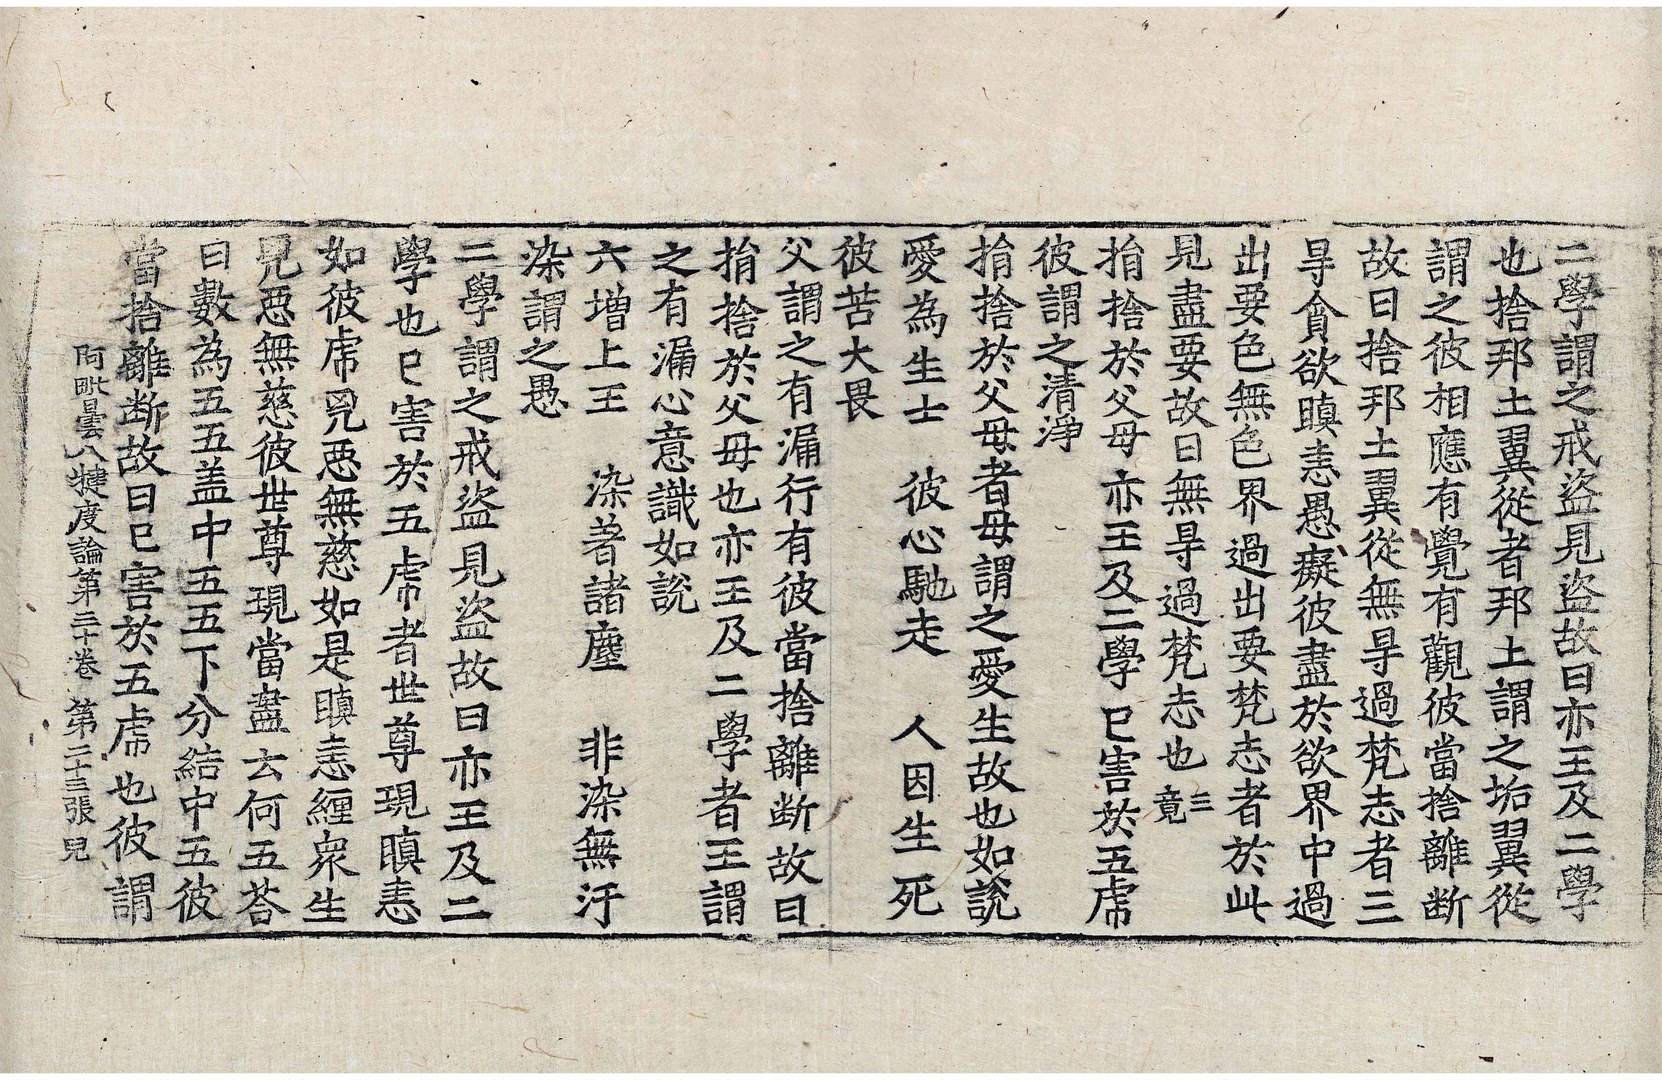 二學謂之戒盜見盜故曰亦王及二學
也捨邦土翼從者邦土謂之垢翼從
謂之彼相應有覺有觀彼當捨離断
故曰捨邦土翼從無㝵過梵志者三
㝵貪欲瞋恚愚癡彼盡於欲界中過
出要色無色界過出要梵志者於此
見盡要故曰無㝵過梵志也 三竟
捐捨於父母 亦王及二學 已害於五虎
彼謂之清淨
捐捨於父母者母謂之愛生故也如說
愛為生士 彼心馳走 人因生死
彼苦大畏
父謂之有漏行有彼當捨離断故曰
捐捨於父母也亦王及二學者王謂
之有漏心意識如說
六增上王 染著諸塵 非染無汙
染謂之愚
二學謂之戒盜見盜故曰亦王及二
學也已害於五虎者世尊現瞋恚
如彼虎兇惡無慈如是瞋恚纏衆生
兇惡無慈彼世尊現當盡云何五荅
曰數為五五盖中五五下分結中五彼
當捨離断故曰已害於五虎也彼謂
阿毗曇八犍度論第三十卷 第二十三張 皃